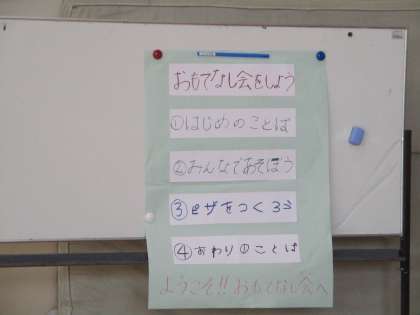 おもてなし会をしよう
①はじめのことば
②みんなであそぼう
③ピザをつくろう
④おわりのことば
ようこそ!!おもてなし会へ